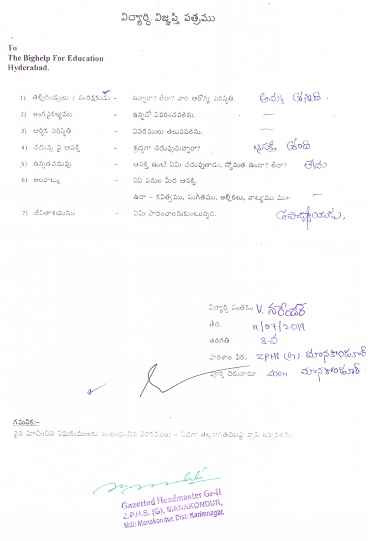 విద్యార్థి విజ్ఞప్తి పత్రము
To
The Bighelp For Education
Hyderabad.
1) తల్లిదండ్రులు / సంరక్షకుడు - ఉన్నారా? లేరా? వారి ఆరోగ్య పరిస్థితి. అమ్మ
2) అంగవైకల్యము - ఉన్నచో వివరించవలెను. —
3) ఆర్థిక పరిస్థితి - వివరములు తెలుపవలెను. —
4) చదువు పై ఆసక్తి - శ్రద్ధగా చదువుచున్నారా? ఆసక్తి ఉంది
5) ఉన్నతచదువు - ఆసక్తి ఉంటే ఏమి చదువుతాడు, స్తోమత ఉందా? లేదా? లేదు
6) అలవాట్లు - ఏ ఏ పనుల మీద ఆసక్తి.
ఉదా - కవిత్వము, సంగీతము, అల్లికలు, నాట్యము మొ- —
7) జీవితాశయము - ఏమి సాధించాలనుకుంటున్నది. ఉపాధ్యాయుడు.
విద్యార్థి సంతకం V.
తేది. 11/07/2019
తరగతి 8
పాఠశాల పేరు ZPHS (G) మానకొండూర్
పూర్తి చిరునామా మానకొండూర్
గమనిక:-
పైన సూచించిన విషయములకు సంబంధించిన వివరములు -
Gazetted Headmaster Gr-II
Z.P.H.S. (G). MANAKONDUR,
Mdl: Manakondur, Dist: Karimnagar.